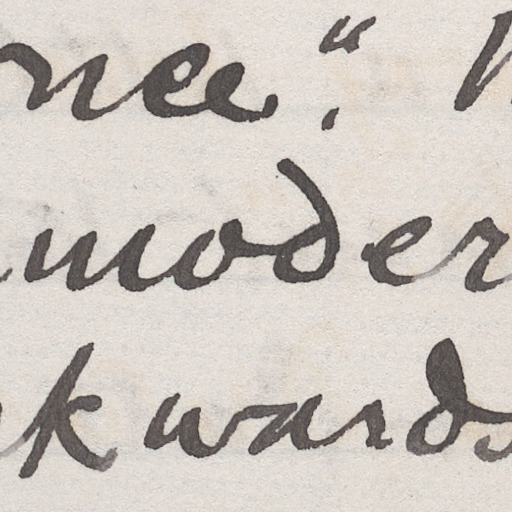 nce".
moder
kwards